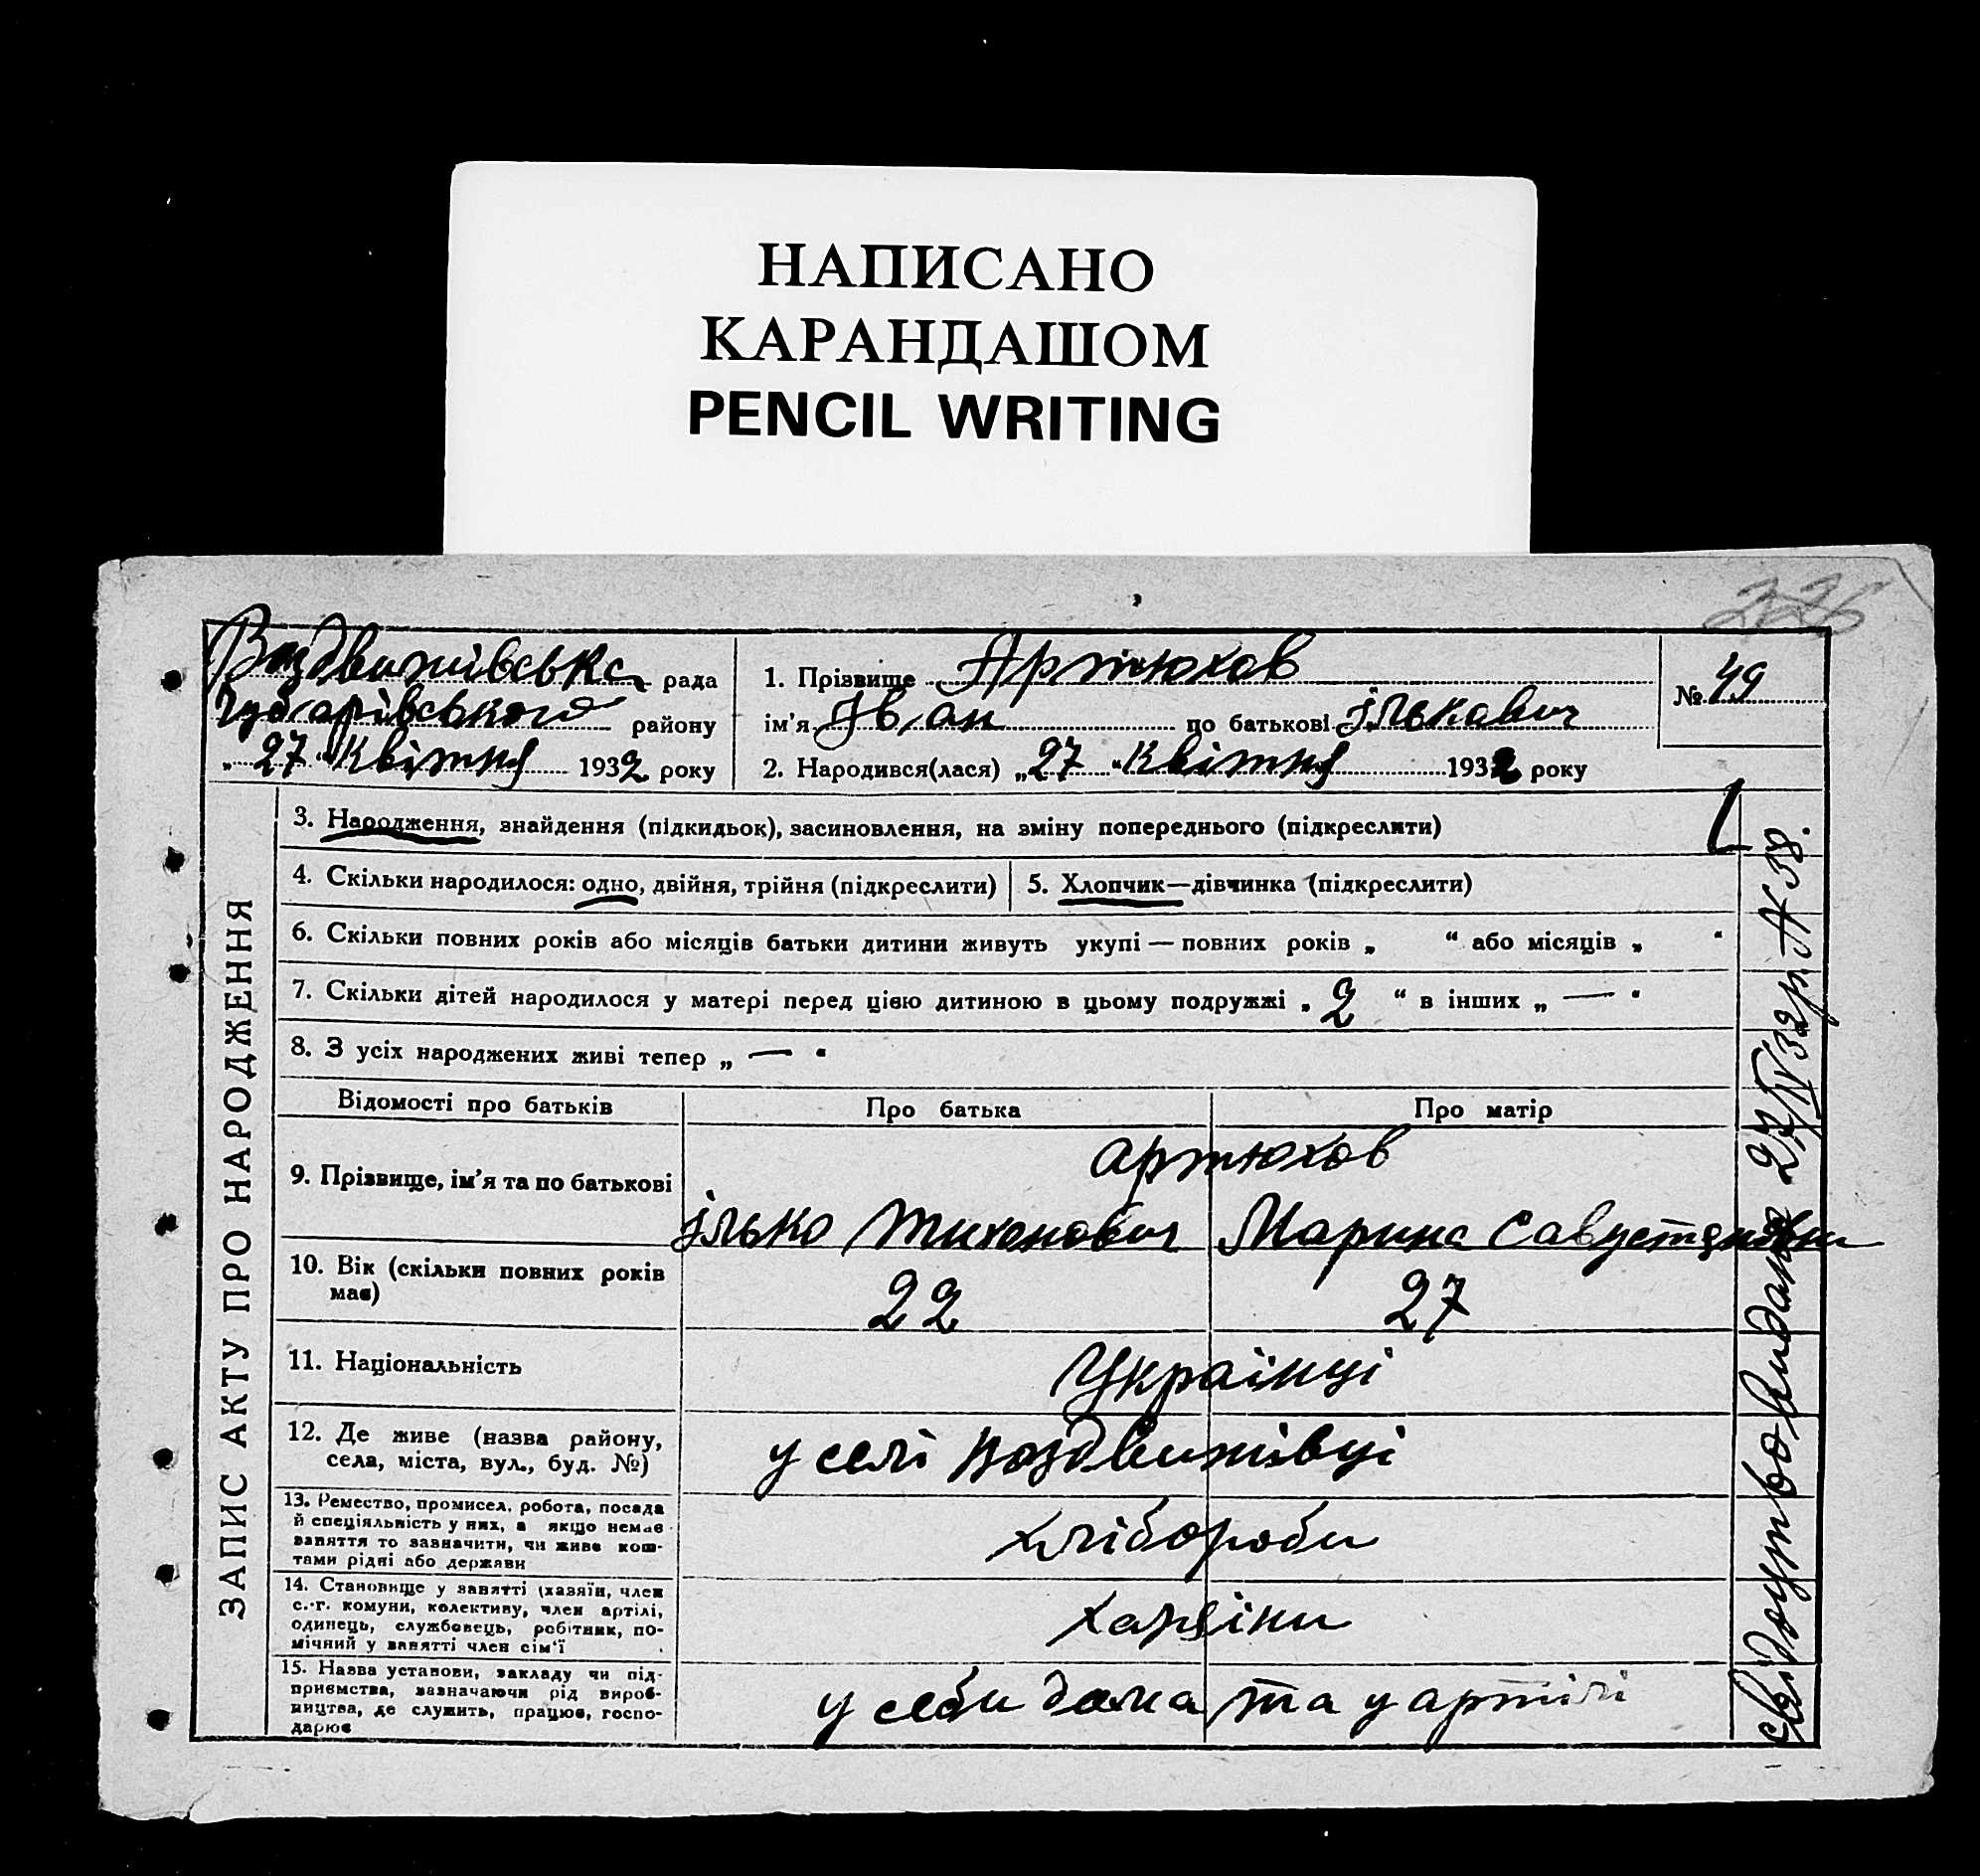 НАПИСАНО
КАРАНДАШОМ
PENCIL WRITING
326
Воздвижівська рада
Чубарівського району
„ 27 “ Квітня 1932 року
1. Прізвище Артюхов
ім'я Іван по батькові ількович
2. Народився(лася) „ 27 “ Квітня 1932 року
№ 49
ЗАПИС АКТУ ПРО НАРОДЖЕННЯ
3. Народження, знайдення (підкидьок), засиновлення, на зміну попереднього (підкреслити)
4. Скільки народилося: одно, двійня, трійня (підкреслити)
5. Хлопчик—дівчинка (підкреслити)
6. Скільки повних років або місяців батьки дитини живуть укупі — повних років „ “ або місяців „ “
7. Скільки дітей народилося у матері перед цією дитиною в цьому подружжі „ 2 “ в інших „ — “
8. З усіх народжених живі тепер „ — “
Відомості про батьків
Про батька
Про матір
9. Прізвище, ім'я та по батькові
Артюхов
ілько Тихонович Марина Савустянівни
10. Вік (скільки повних років
має)
22 27
11. Національність
Українці
12. Де живе (назва району,
села, міста, вул., буд. №)
у селі Воздвижівці
13. Ремество, промисел, робота, посада
й спеціяльність у них, а якщо немає
заняття то зазначити, чи живе кош-
тами рідні або держави
хлібороби
14. Становище у занятті (хазяїн, член
с.-г. комуни, колективу, член артілі,
одинець, службовець, робітник, по-
мічний у занятті член сім'ї
15. Назва установи, закладу чи під-
приємства, зазначаючи рід вироб-
ництва, де служить, працює, госпо-
дарює
у себи дома та у артілі
свідоцтво видано 27/IV 32р. N 38.